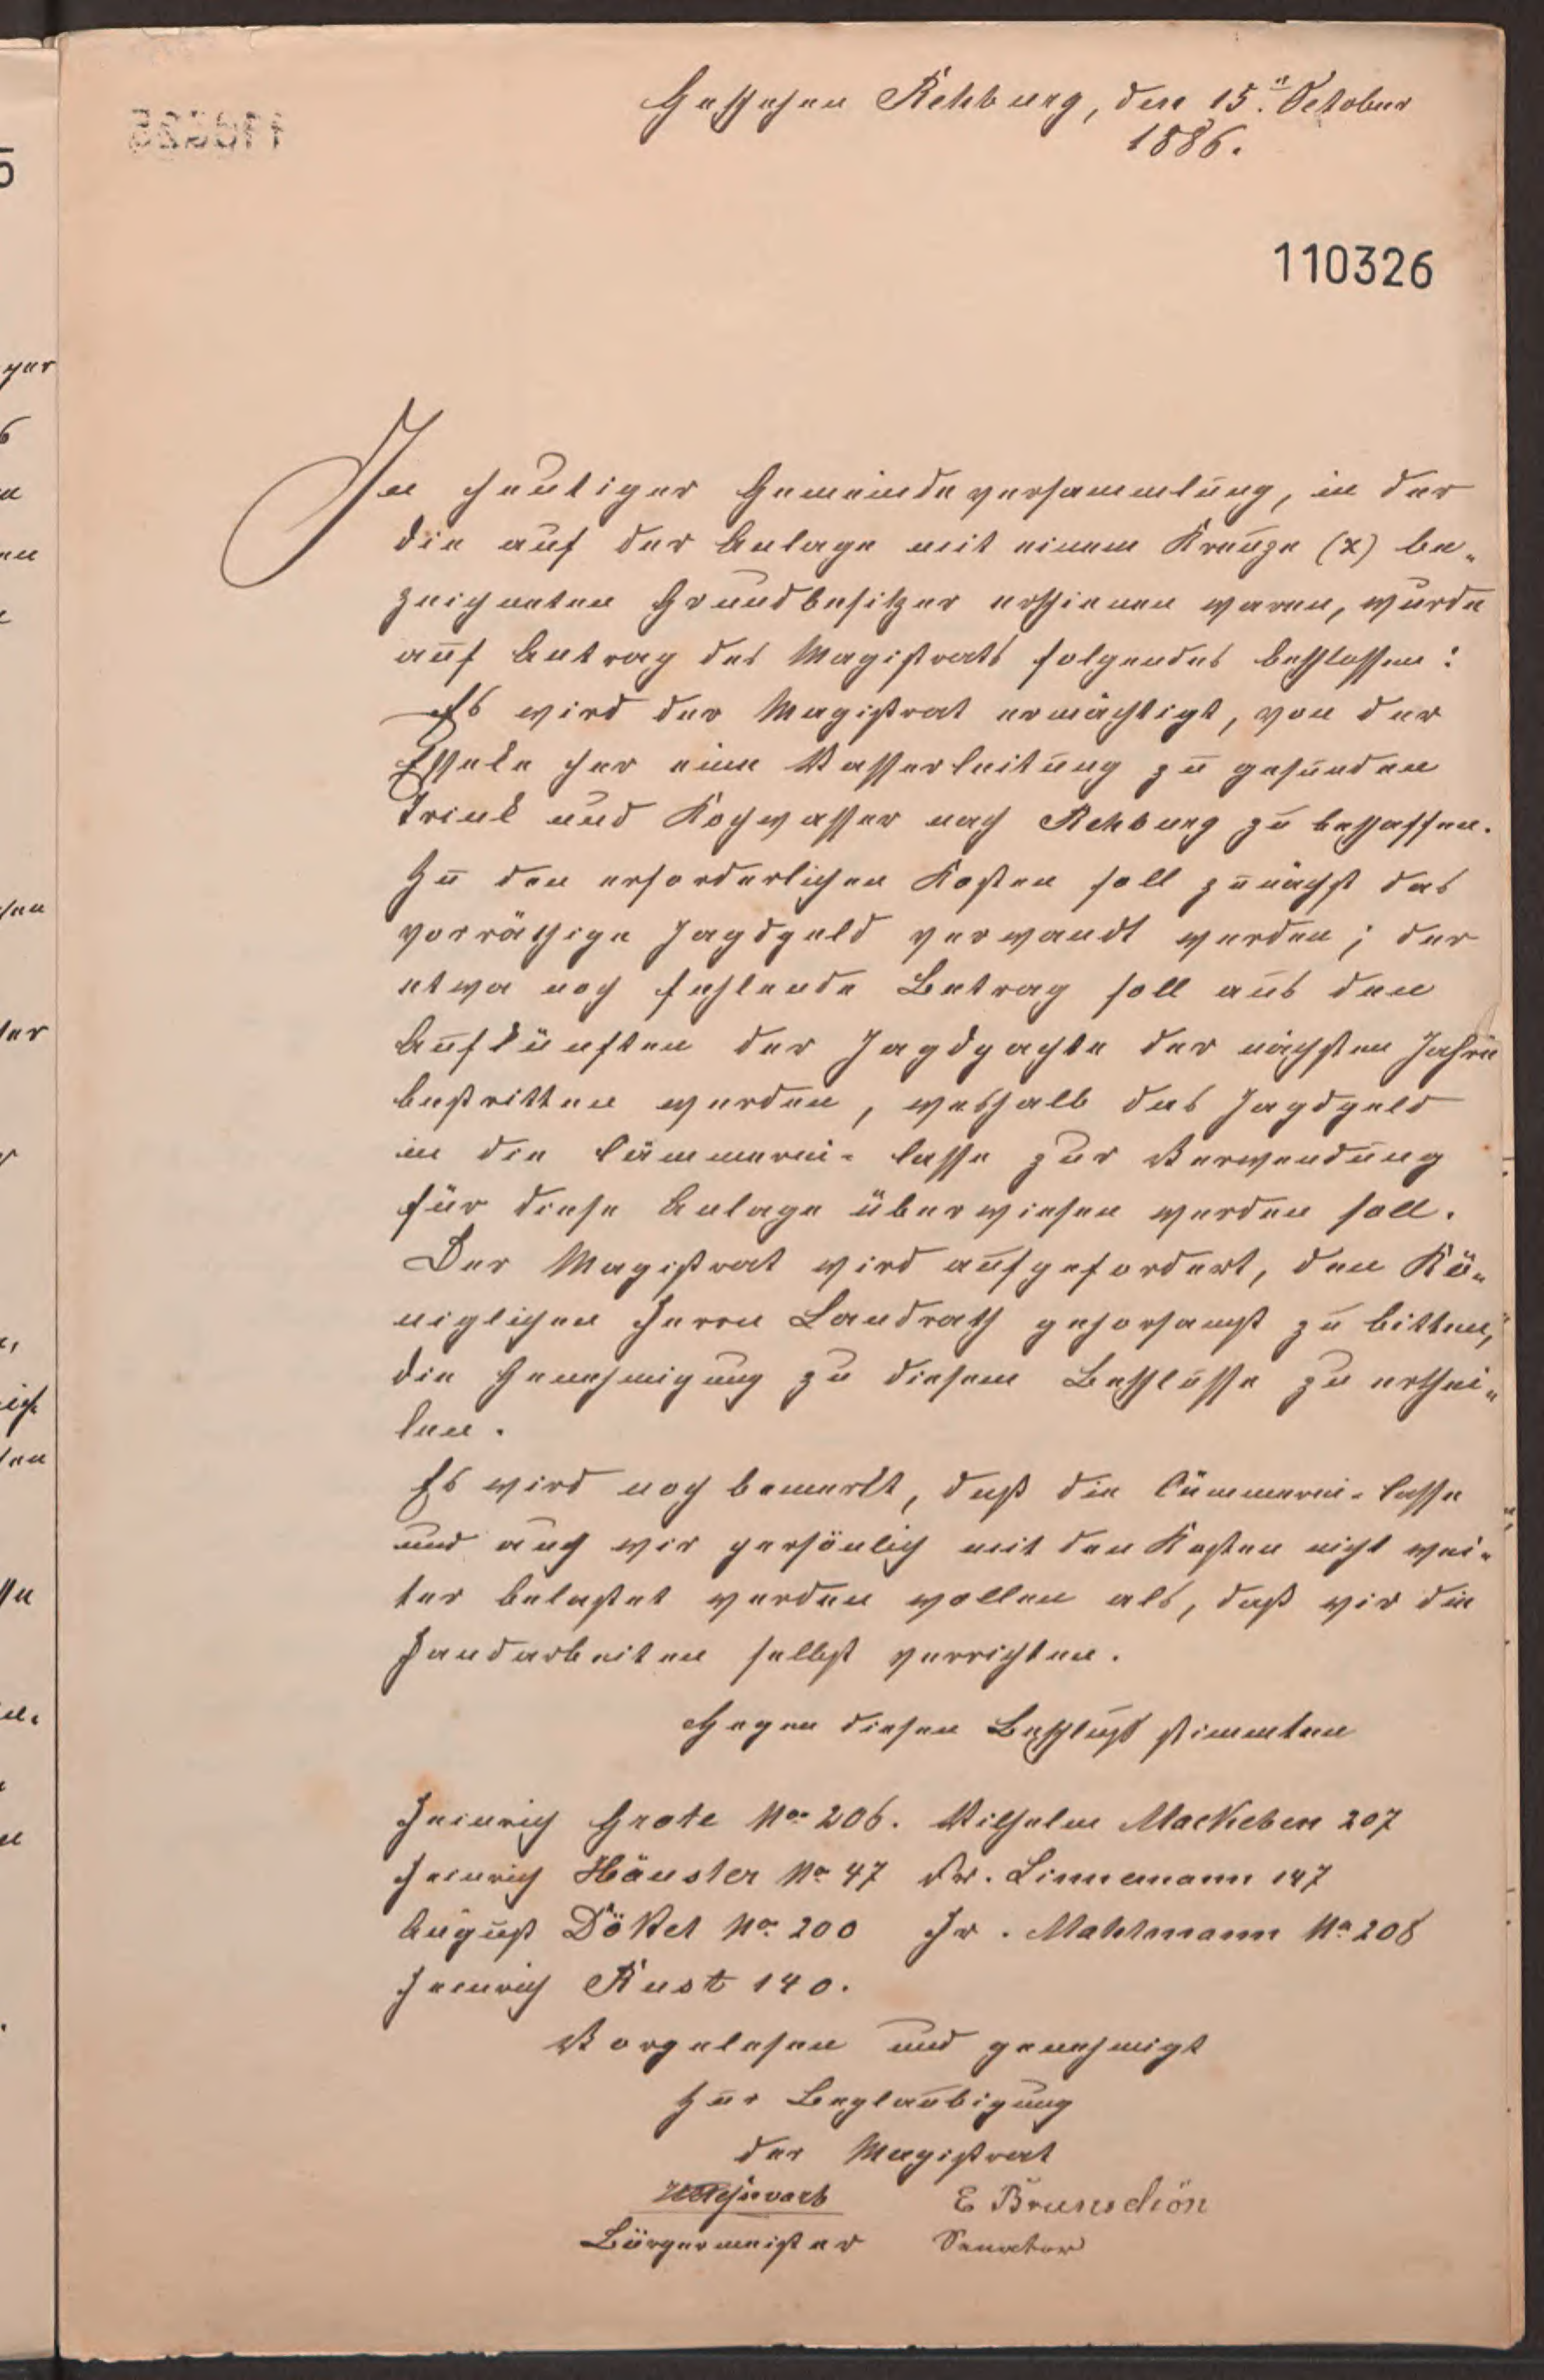 Geschehen Rehburg, den 15.ⁿ October
1886.
110326
In heutiger Gemeindeversammlung, in der
die auf der Anlage mit einem Kreuze (x) be-
zeichneten Grundbesitzer erschienen waren, wurde
auf Antrag des Magistrats folgendes beschlossen:
Es wird der Magistrat ermächtigt, von der
her eine Wasserleitung zu gesunden
Trink und Kochwasser nach Rehburg zu beschaffen.
Zu den erforderlichen Kosten soll zunächst das
vorräthige Jagdgeld verwandt werden; der
etwa noch fehlende Betrag soll aus den
Aufkünften der Jagdpacht der nächsten Jahre
bestritten werden, weshalb das Jagdgeld
in die Cämmerei-Casse zur Verwendung
für diese Anlage überwiesen werden soll.
Der Magistrat wird aufgefordert, den Kö-
niglichen Herrn Landrath gehorsamst zu bitten,
die Genehmigung zu diesem Beschlusse zu erthei-
len.
Es wird noch bemerkt, daß die Cämmerei-Casse
und auch wir persönlich mit den Kosten nicht wei-
ter belastet werden wollen als, daß wir die
Handarbeiten selbst verrichten.
Gegen diesen Beschluß stimmten
Heinrich Grote No. 206. Wilhelm Mackeben 207
Heinrich Häusler No 47 Fr. Linnemann 147
August Dökel No. 200 Fr. Mahlmann No 208
Heinrich Rust 140.
Vorgelesen und genehmigt
Zur Beglaubigung
der Magistrat
E Brunschön
Bürgermeister Senator